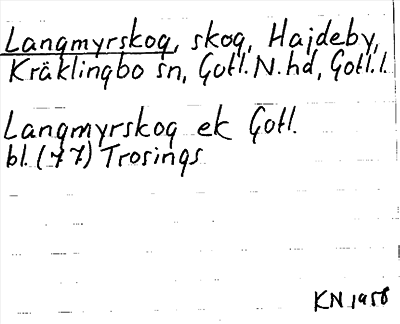 Langmyrskog, skog, Hajdeby,
Kräklingbo sn, Gotl. N. hd, Gotl. l.
Langmyrskog ek Gotl.
bl. (77) Trosings
KN 1958